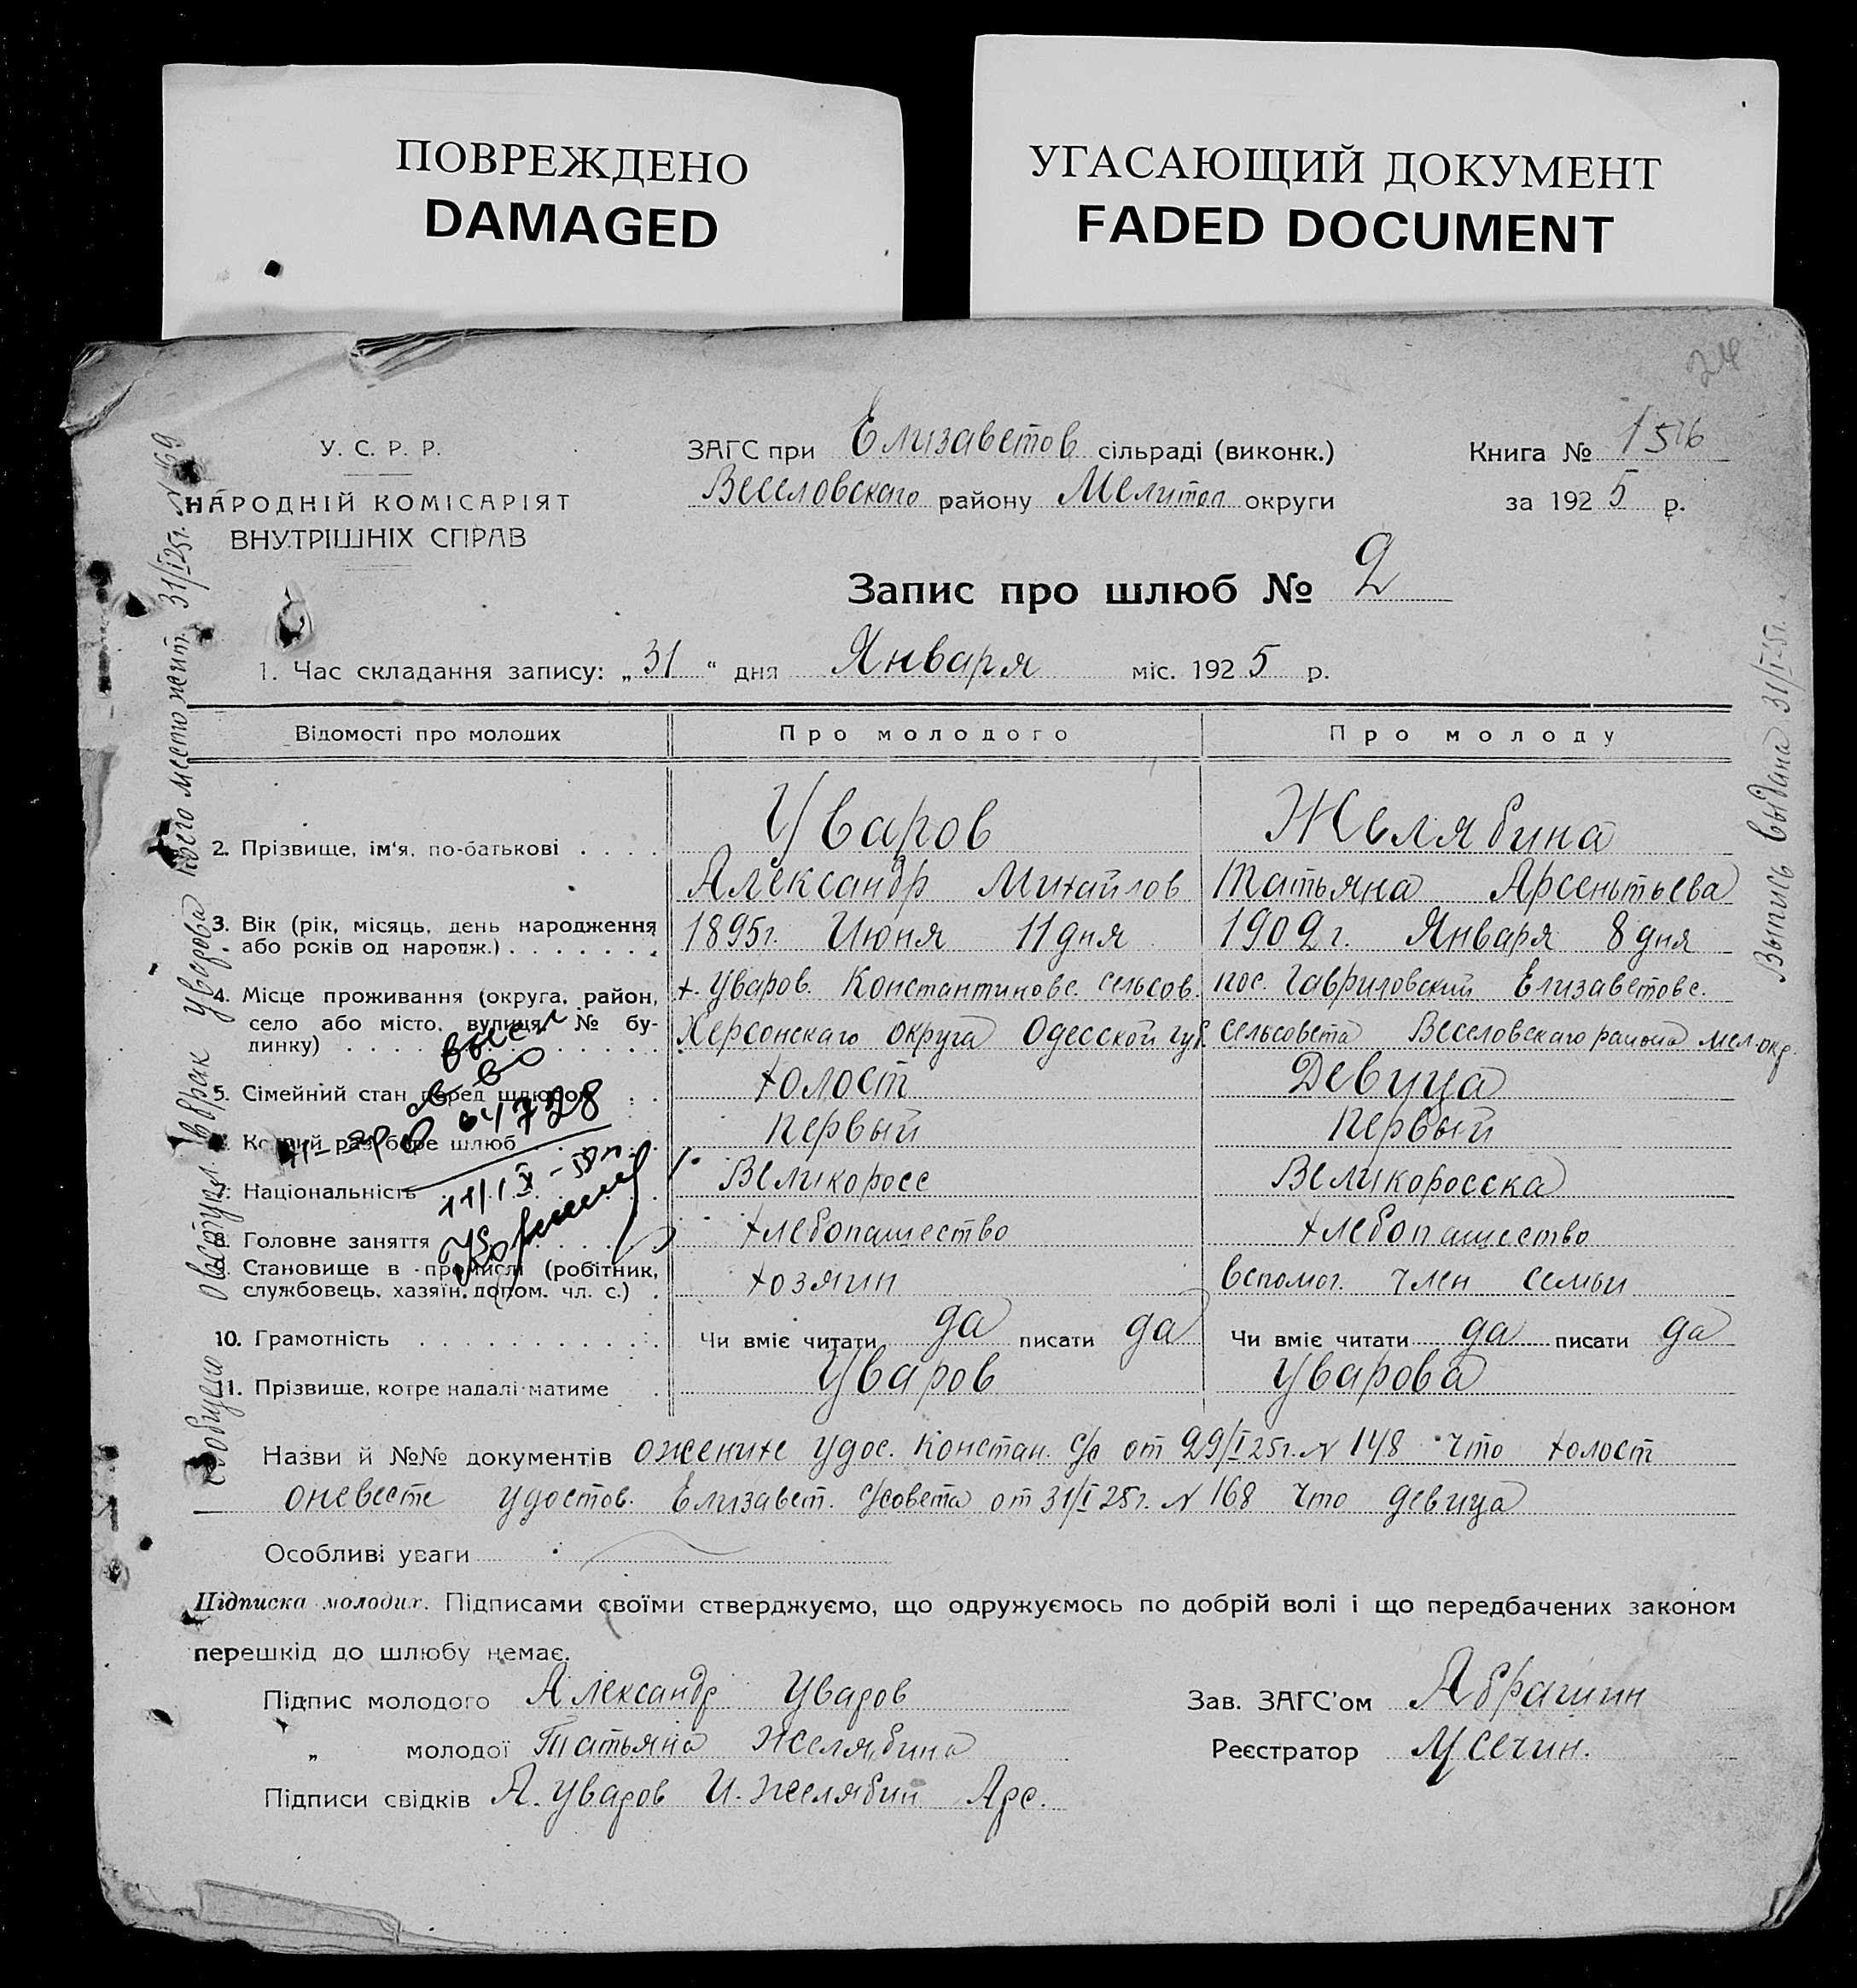 ПОВРЕЖДЕНО
DAMAGED
УГАСАЮЩИЙ ДОКУМЕНТ
FADED DOCUMENT
24
У. С. Р. Р.
НАРОДНІЙ КОМІСАРІЯТ
ВНУТРІШНІХ СПРАВ
ЗАГС при Елизаветов сільраді (виконк.)
Веселовскаго району Мелитоп округи
Книга №
за 1925 р.
Запис про шлюб № 2
1. Час складання запису: „31“ дня Января міс. 1925 р.
Відомості про молодих Про молодого Про молоду
Уваров Желябина
2. Прізвище, ім'я, по-батькові . . . . Александр Михайлов Татьяна Арсентьева
3. Вік (рік, місяць, день народження
або років од народж.) . . . . . . . 1895г. Июня 11 дня 1909г. Января 8 дня
4. Місце проживання (округа, район, х. Уваров. Константиновс. сельсов. пос. Гавриловский Елизаветовс.
село або місто, вулиця, № бу-
динку) . . . . Херсонскаго округа Одесской губ. сельсовета Веселовскаго района Мел. окр.
5. Сімейний стан перед шлюбом . . холост Девица
Котрий раз бере шлюб . . первый первый
Національність . . . Великоросс Великоросска
Головне заняття . . . хлебопашество хлебопашество
Становище в промислі (робітник,
службовець, хазяїн, допом. чл. с.) . хозяин вспомог. член семьи
10. Грамотність . . . . . Чи вміє читати да писати да Чи вміє читати да писати да
11. Прізвище, котре надалі матиме . Уваров Уварова
Назви й №№ документів о женихе удос. Констан. с/с от 29/I 25г. N 148 что холост
о невесте удостов. Елизавет. с/совета от 31/I 25г. N 168 что девица
Особливі уваги
Підписка молодих. Підписами своїми стверджуємо, що одружуємось по добрій волі і що передбачених законом
перешкід до шлюбу немає.
Підпис молодого Александр Уваров
„ молодої Татьяна Желябина
Підписи свідків А. Уваров И. Желябин Арс.
Зав. ЗАГС'ом Абрашин
Реєстратор Мсечин.
Сообщено о вступл. в брак Уварова
31/I 25г. N 169
Выпись выдана 31/I-25г.